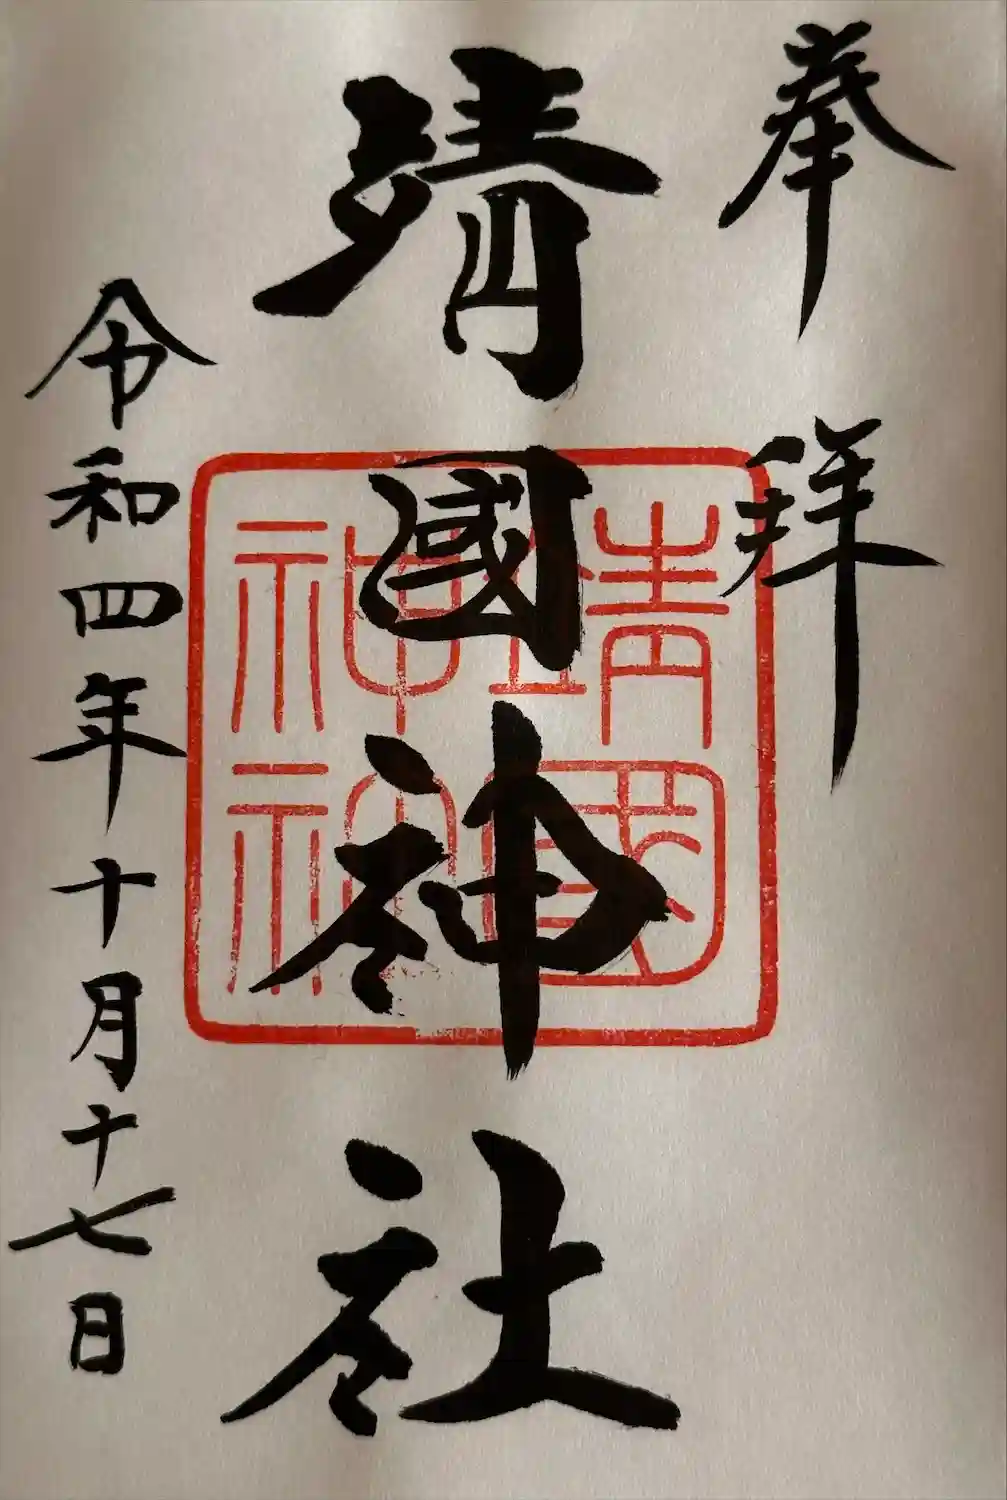 奉拜
靖國神社
靖國神社
令和四年十月十七日